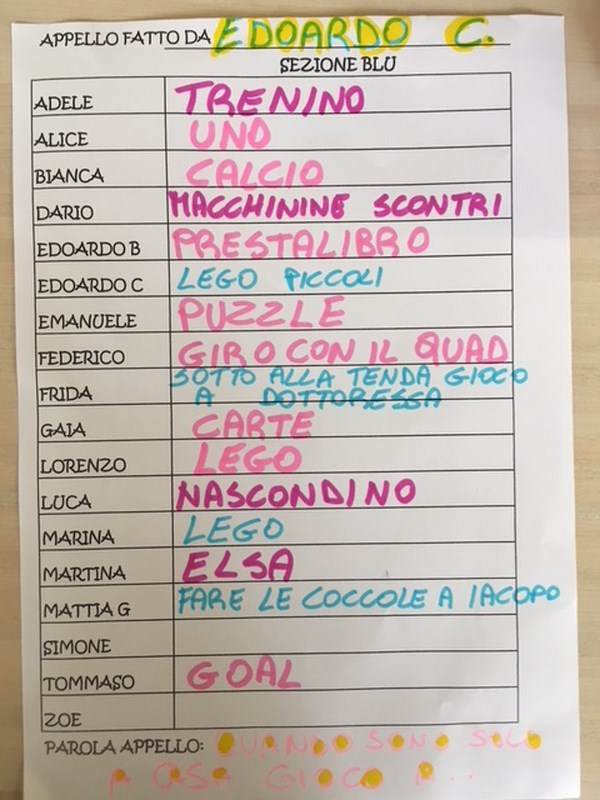 APPELLO FATTO DA EDOARDO C.
SEZIONE BLU
ADELE TRENINO
ALICE UNO
BIANCA CALCIO
DARIO MACCHININE SCONTRI
EDOARDO B PRESTALIBRO
EDOARDO C LEGO PICCOLI
EMANUELE PUZZLE
FEDERICO GIRO CON IL QUAD
FRIDA SOTTO ALLA TENDA GIOCO
A DOTTORESSA
GAIA CARTE
LORENZO LEGO
LUCA NASCONDINO
MARINA LEGO
MARTINA ELSA
MATTIA G FARE LE COCCOLE A IACOPO
SIMONE
TOMMASO GOAL
ZOE
PAROLA APPELLO: QUANDO SONO SOLO
A CASA GIOCO A..